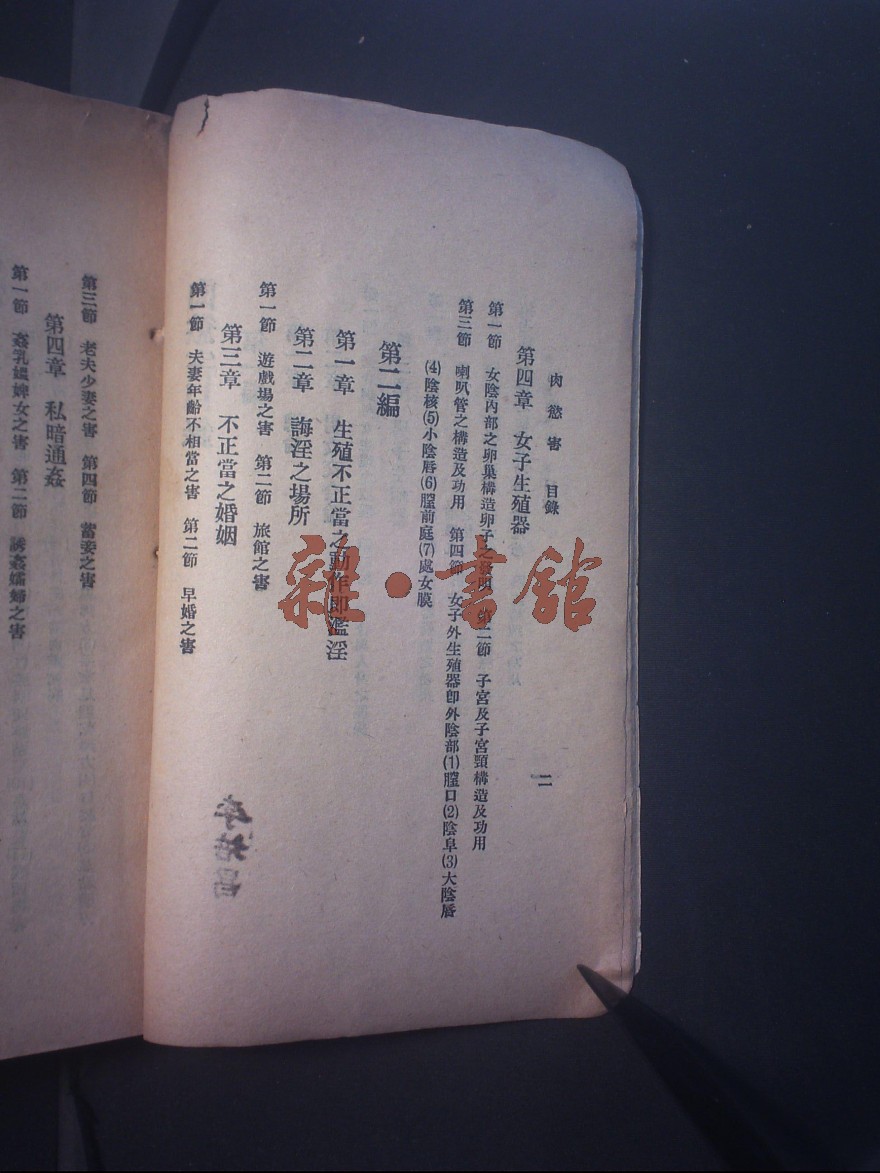 肉慾害 目錄
二
第四章 女子生殖器
第一節 女陰內部之卵巢構造卵子之 第二節 子宮及子宮頸構造及功用
第三節 喇叭管之構造及功用 第四節 女子外生殖器卽外陰部(1)膣口(2)陰阜(3)大陰唇
(4)陰核(5)小陰唇(6)膣前庭(7)處女膜
第二編
第一章 生殖不正當之動作卽濫淫
第二章 誨淫之場所
第一節 遊戲場之害 第二節 旅館之害
第三章 不正當之婚姻
第一節 夫妻年齡不相當之害 第二節 早婚之害
第三節 老夫少妻之害 第四節 蓄妾之害
第四章 私暗通姦
第一節 姦乳媼婢女之害 第二節 誘姦孀婦之害
雜·書館